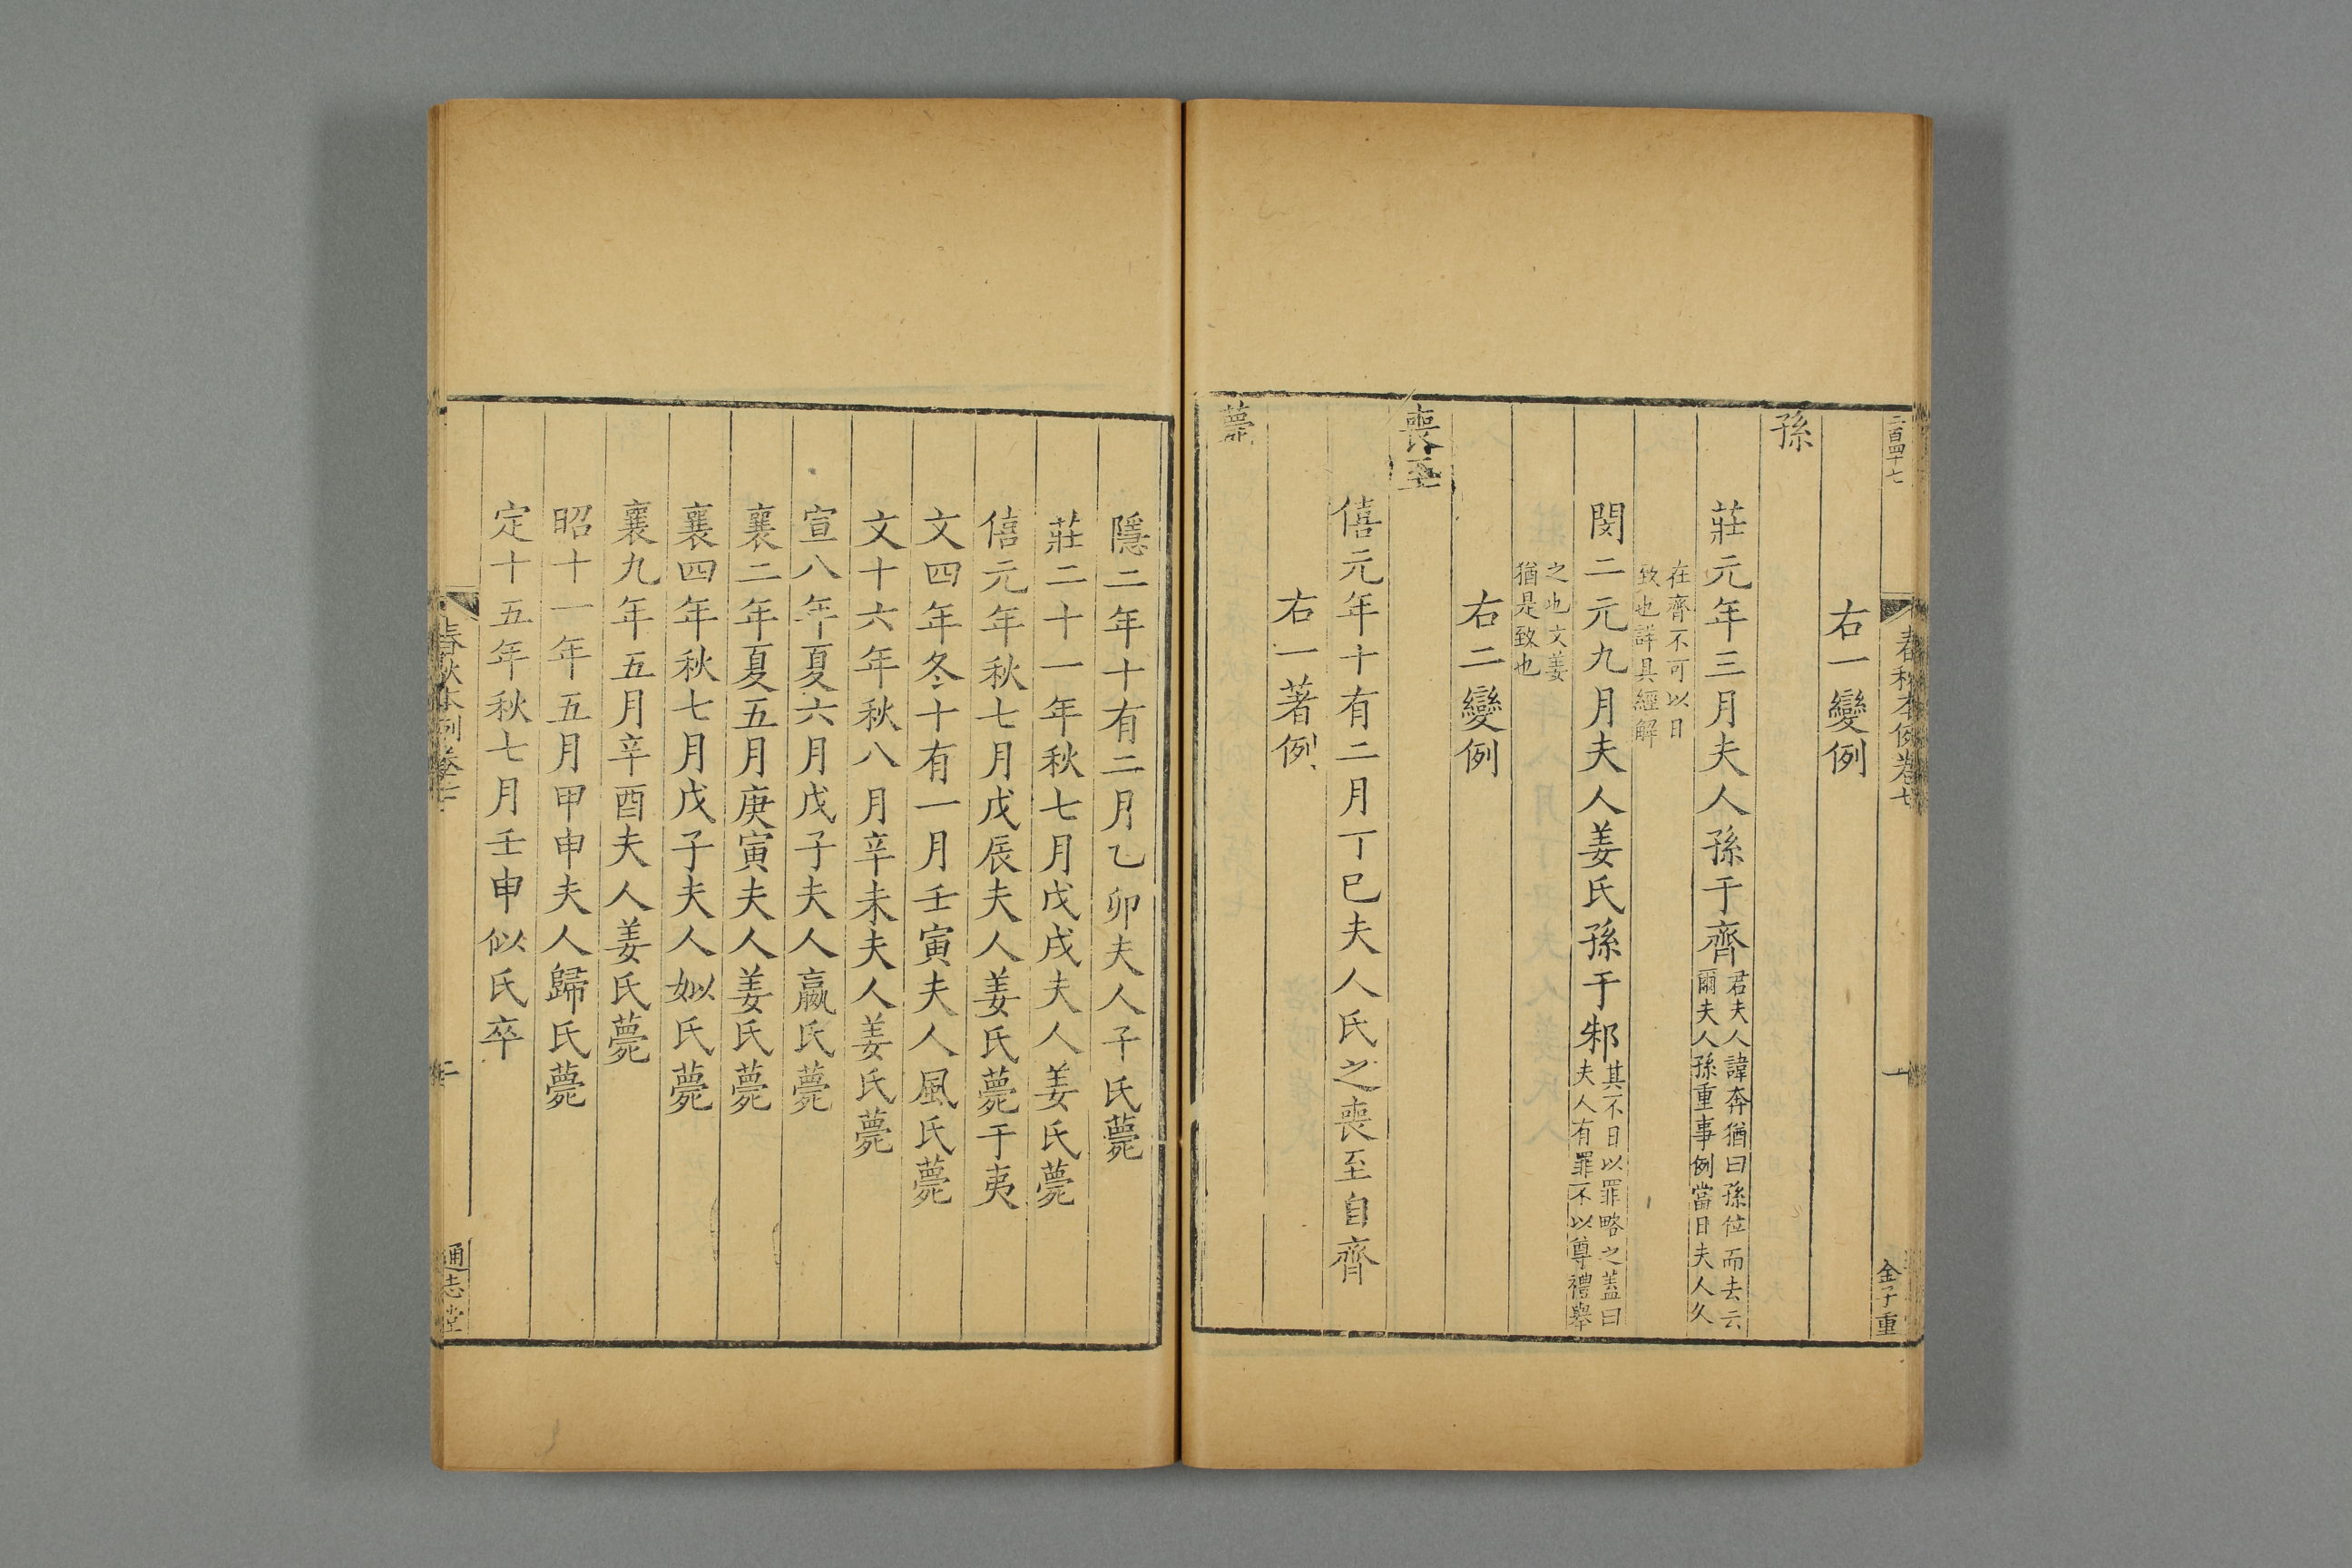 二百四十七
春秋本例卷七
一
金子重
右一變例
孫
莊元年三月夫人孫于齊君夫人諱奔猶曰孫位而去云
爾夫人孫重事例當日夫人久
在齊不可以日
致也詳具經解
閔二元九月夫人姜氏孫于邾其不日以罪略之蓋曰
夫人有罪不以尊禮舉
之也文姜
猶是致也
右二變例
喪至
僖元年十有二月丁巳夫人氏之喪至自齊
右一著例
薨
隱二年十有二月乙卯夫人子氏薨
莊二十一年秋七月戊戌夫人姜氏薨
僖元年秋七月戊辰夫人姜氏薨于夷
文四年冬十有一月壬寅夫人風氏薨
文十六年秋八月辛未夫人姜氏薨
宣八年夏六月戊子夫人嬴氏薨
襄二年夏五月庚寅夫人姜氏薨
襄四年秋七月戊子夫人姒氏薨
襄九年五月辛酉夫人姜氏薨
昭十一年五月甲申夫人歸氏薨
定十五年秋七月壬申似氏卒
春秋本例卷七
通志堂